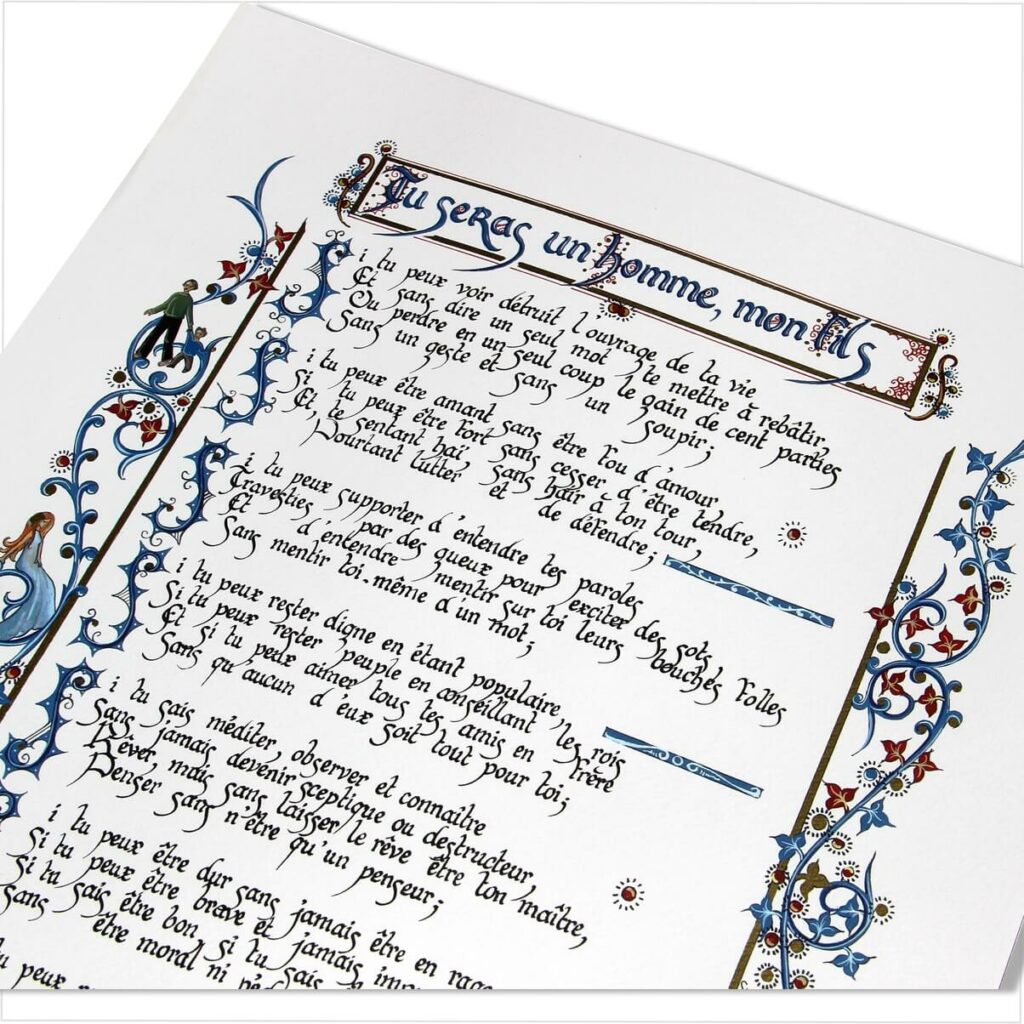 Tu seras un homme, mon Fils
Si tu peux voir détruit l'ouvrage de la vie
Et sans dire un seul mot te mettre à rebâtir,
Ou perdre en un seul coup le gain de cent parties
Sans un geste et sans un soupir;
Si tu peux être amant sans être fou d'amour,
Si tu peux être fort sans cesser d'être tendre,
Et, te sentant haï, sans haïr à ton tour,
Pourtant lutter et de défendre;
Si tu peux supporter d'entendre tes paroles
Travesties par des gueux pour exciter des sots,
Et d'entendre mentir sur toi leurs bouches folles
Sans mentir toi-même d'un mot;
Si tu peux rester digne en étant populaire,
Si tu peux rester peuple en conseillant les rois
Et si tu peux aimer tous tes amis en frère
Sans qu'aucun d'eux soit tout pour toi;
Si tu sais méditer, observer et connaître
Sans jamais devenir sceptique ou destructeur,
Rêver, mais sans laisser le rêve être ton maître,
Penser sans n'être qu'un penseur;
Si tu peux être dur sans jamais être en rage
Si tu peux être brave et jamais
Si tu sais être bon si tu sais
Sans être moral ni
tu peux